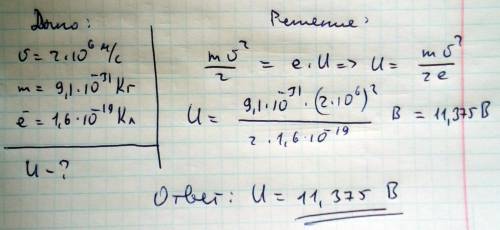 Дано:
υ = 2·10⁶ м/с
m = 9,1·10⁻³¹ Кг
e⁻ = 1,6·10⁻¹⁹ Кл
U - ?
Решение:
mυ²/2 = e·U => U = mυ²/2e
U = 9,1·10⁻³¹·(2·10⁶)²/2·1,6·10⁻¹⁹ В = 11,375 В
Ответ: U = 11,375 В